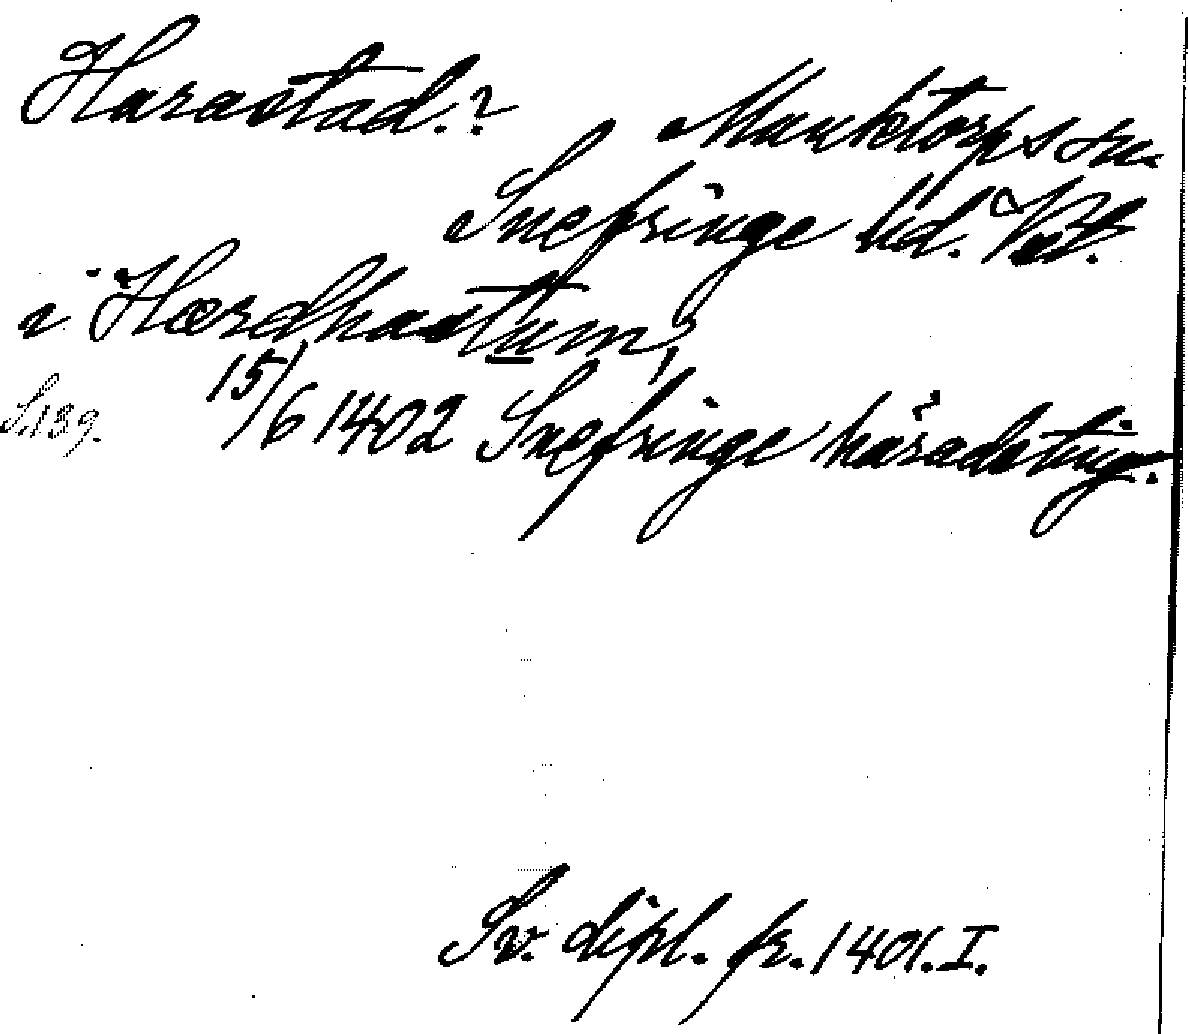 Harastad.? Munktorps sn.
Snefringe hd. Vstl.
i Hærdhastum,
S.139. 15/6 1402 Snefringe häradsting.
Sv. dipl. fr. 1401. I.